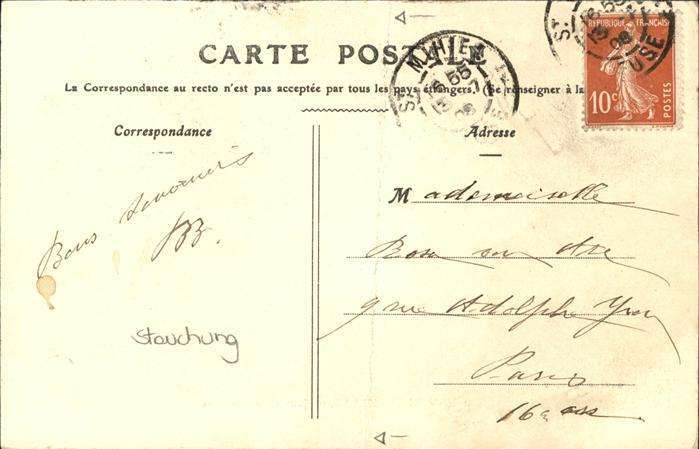 CARTE POSTALE
La Correspondance au recto n'est pas acceptée par tous les pays étrangers. (Se renseigner à la
Correspondance
Bons souvenirs
Stauchung
Adresse
Mademoiselle
9 rue Adolphe Yvon
Paris
16e
ST MIHIEL
55
REPUBLIQUE FRANÇAISE
10c
POSTES